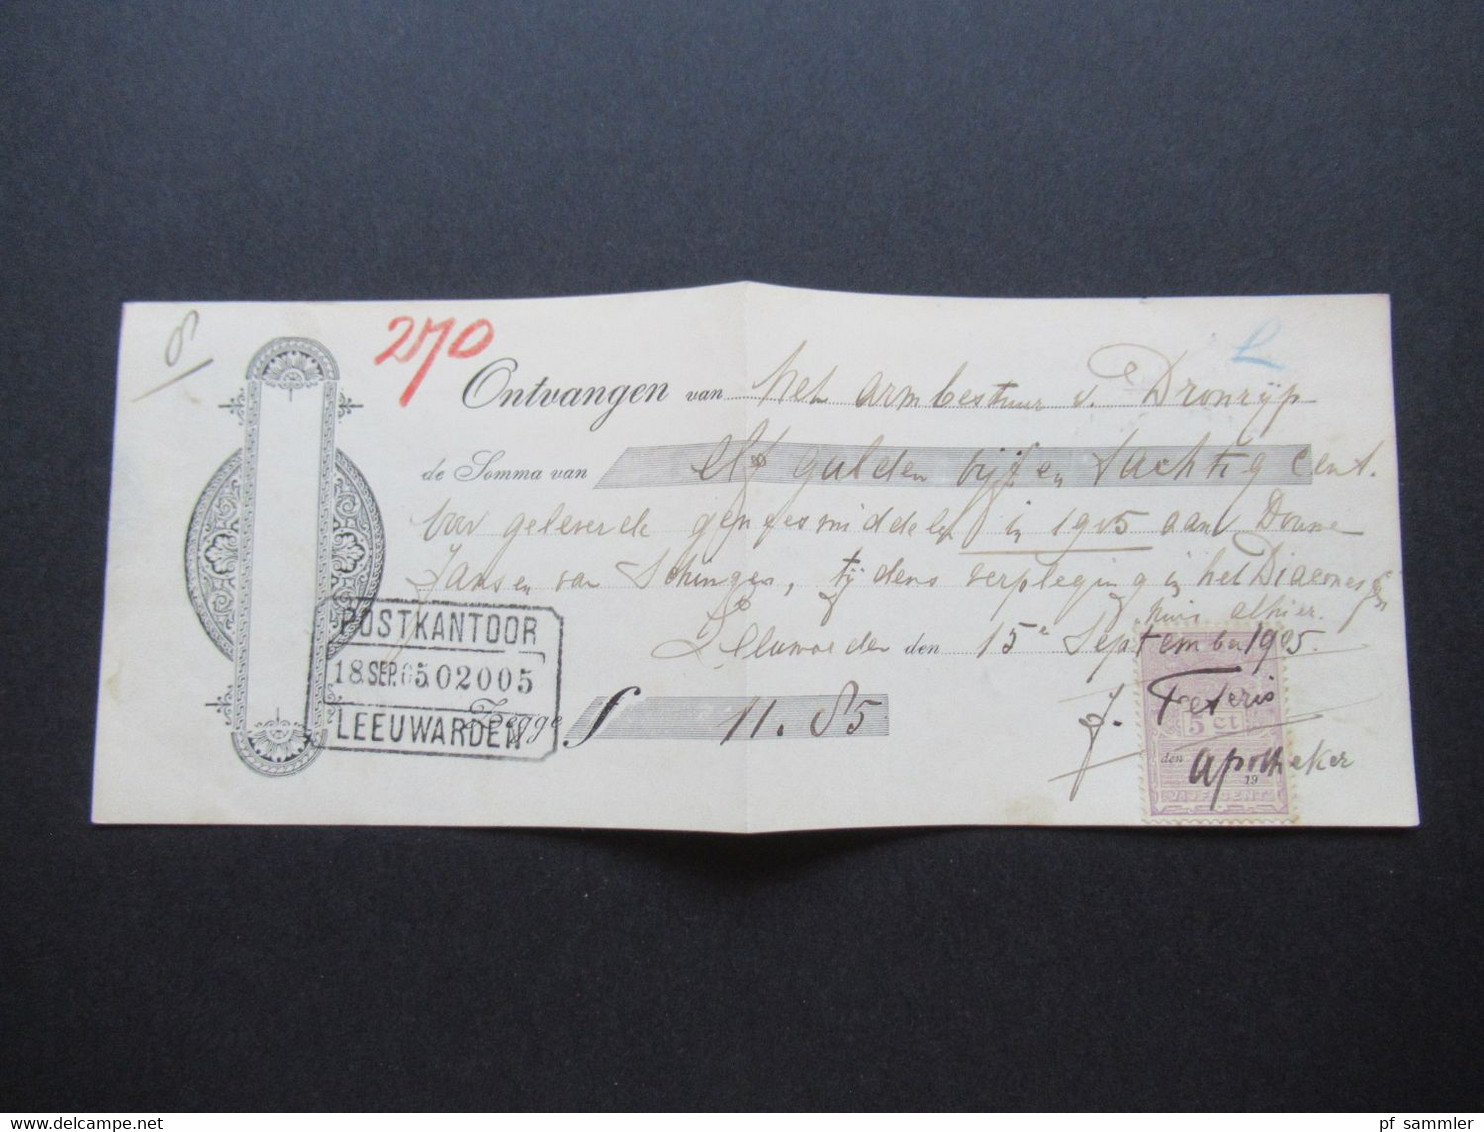 270
Ontvangen van het armbestuur v. Dronrijp
de Somma van elf gulden vijf en tachtig Cent.
voor geleverde geneesmiddelen in 1905 aan Douwe
Jansen van Schingen, tijdens verpleging in het Diaconessen
huis alhier.
Leeuwarden den 15e September 1905.
POSTKANTOOR
18.SEP.05.02005
LEEUWARDEN
Zegge f 11.85
J. Feteris
5 Ct
den Apotheker
19
pf sammler
delcampe.net